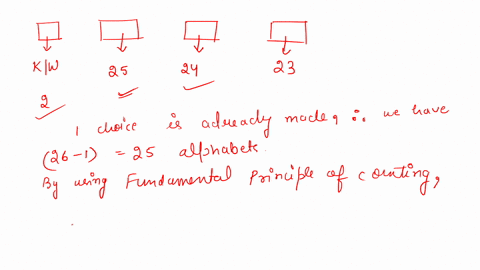 K/W 25 24 23
2
1 choice is already made, ∴ we have
(26-1) = 25 alphabets.
By using Fundamental Principle of counting,